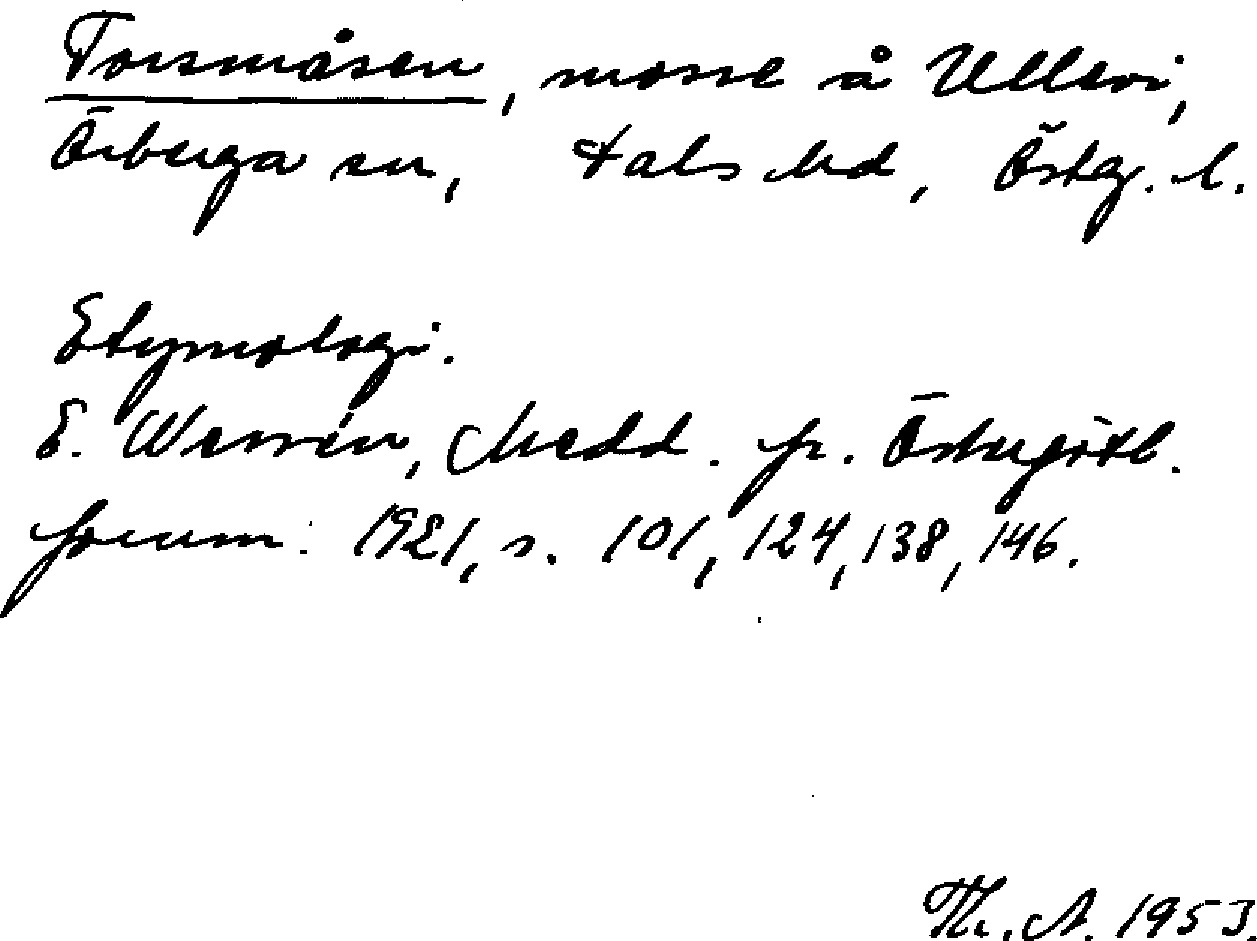 Torsmåsen, mosse å Ullevi,
Örberga sn, Dals hd, Östg. l.
Etymologi.
E. Wessén, Medd. fr. Östergötl.
fornm. 1921, s. 101, 124, 138, 146.
Th. A. 1953.